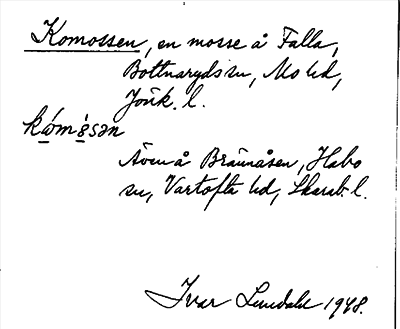 Komossen, en mosse å Falla,
Bottnaryds sn, Mo hd,
Jönk. l.
kómåsən
Även å Brännåsen, Habo
sn, Vartofta hd, Skarab. l.
Ivar Lundahl 1948.